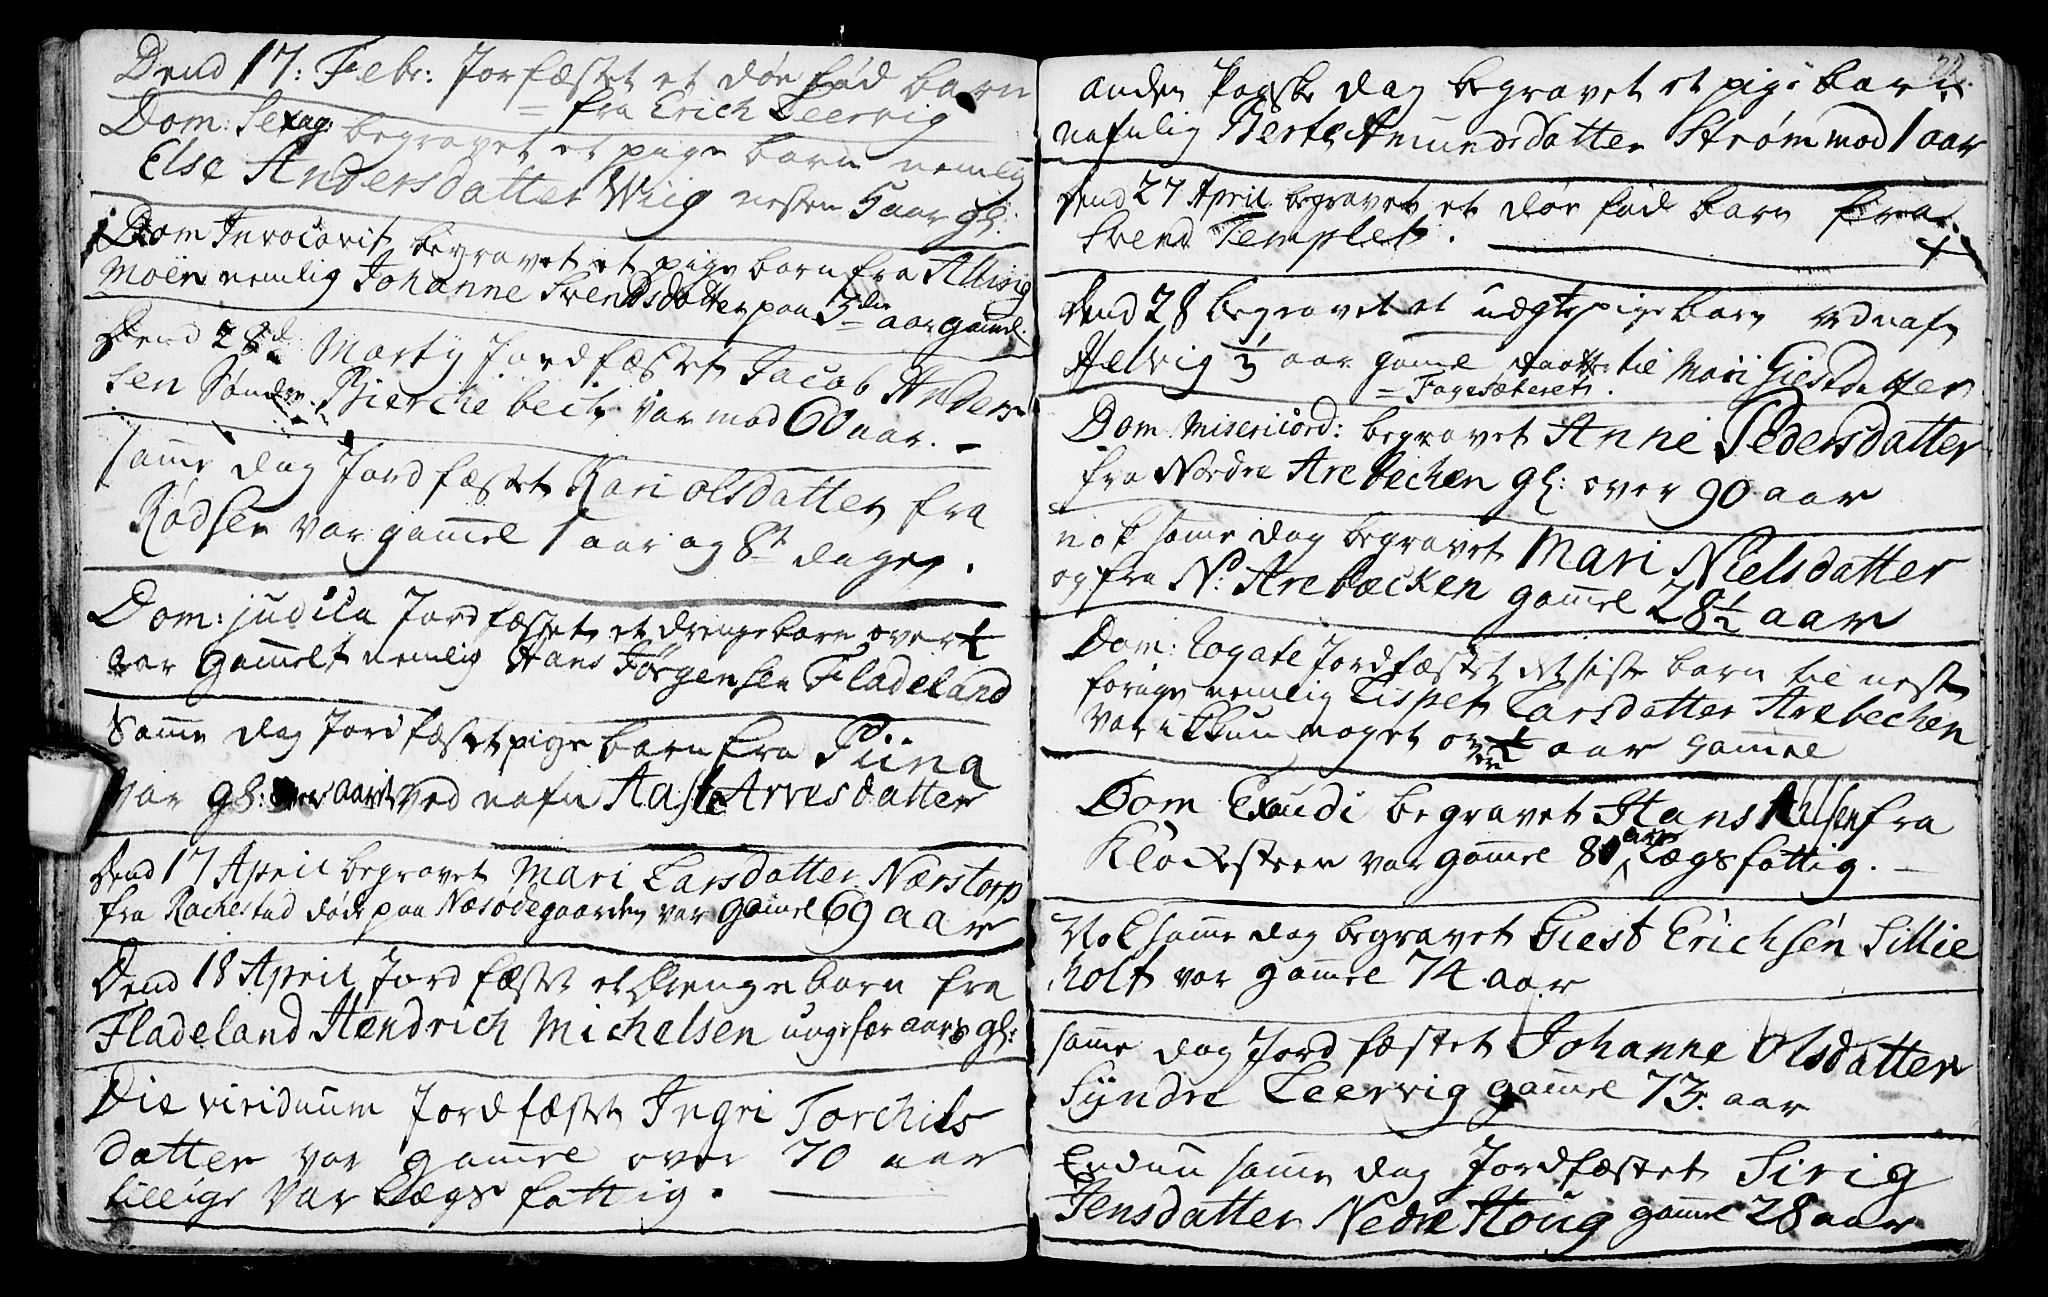 Dend 17: Febr: Jorfæstet et døe fød barn
= fra Erich Leervig
Dom: Sexag: begravet et pige barn nemlig
Else Andersdatter Wiig nesten 5 aar gl:
Dom Invocavit begravet et pige barn fra
Moen nemlig Johanne Svendsdatter paa 3die aar gamel.
Dend 28de Marty Jordfæstet Jacob Anders
sen Søndre Bierchebech var mod 60 aar. -
samme dag Jordfæstet Kari olsdatter fra
Rødsen var gammel 1 aar og 8te dager.
Dom: judica Jordfæstet et drengebarn over ½
aar gammelt nemlig Hans Jørgensen Fladeland
Samme dag Jordfæstet pige barn fra Tiina
var gl: aaret ved nafn Aaste Arvesdatter
Dend 17 April begravet Mari Larsdatter Nærstorp
fra Rachestad døde paa Næsødegaarden var gamel 69 aar
Dend 18 April Jordfæstet et Drenge barn fra
Fladeland Hendrich Michelsen ungefær aars gl:
Die viriduum Jordfæstet Ingri Torchils
datter var gammel over 70 aar
tillige var Lægsfattig.
anden Paaske dag begravet et pige barn
nafnlig Berte Amundsdatter Strøm mod 1 aar
Dend 27 April begravet et døe fød barn fra
Svend Templet.
Dend 28 begravet et uægte pige barn ved nafn
Helvig ⅓ aar gamel daatter til Mari Giestdatter
= Fagesæteret.
Dom Misericord: begravet Anne Pedersdatter
fra Nordre Arebechen gl: over 90 aar
nok same dag begravet Mari Nielsdatter
og fra N: Arebæcken gammel 28½ aar
Dom: Rogate Jordfæstet det siste barn til nest
forige nemlig Lispet Larsdatter Arebechen
var ikkun noget over ½ aar gammel
Dom Exaudi begravet Hans fra
Klochsteen var gammel 80 aar Lægsfattig.
Nok samme dag begravet Giest Erichsen Lillie
holt var gammel 74 aar
samme dag Jordfæstet Johanne Olsdatter
Syndre Leervig gammel 73. aar
Endnu samme dag Jordfæstet Sirig
Jensdatter Nedre Houg gammel 28 aar